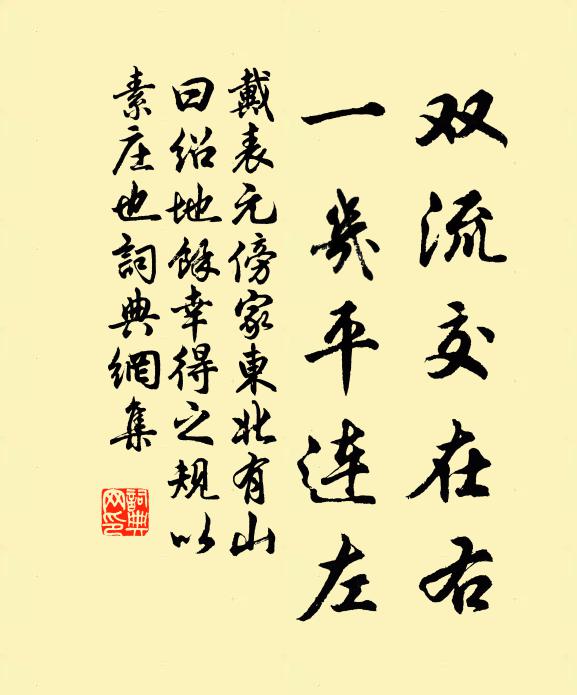 双流交在右
一几平连左
戴表元傍家東北有山
曰绍地餘幸得之規以
素庄也詞典網集
詞典
网印